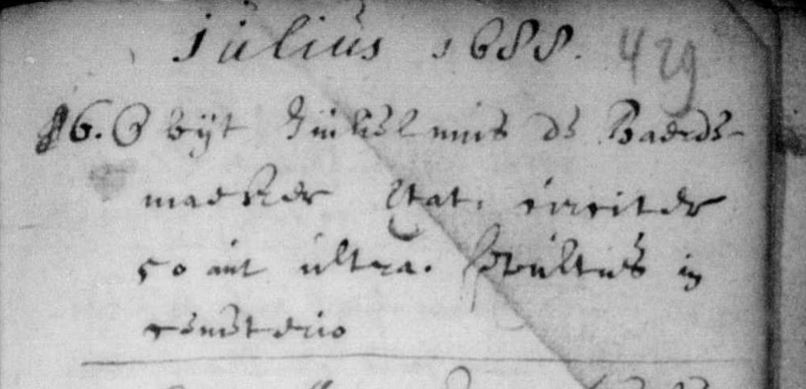 Julius 1688. 429
16. Obijt Guilielmus de Baerds-
maeker Ætat. circiter
50 aut ultra. Sepultus in
cemeterio